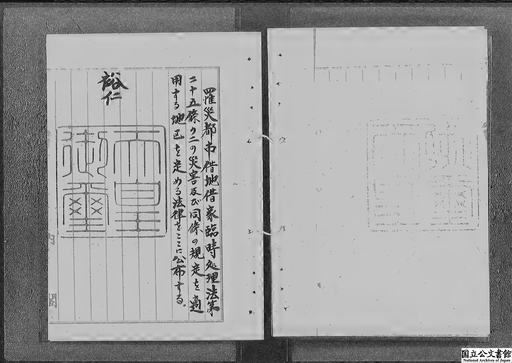 罹災都市借地借家臨時処理法第
二十五條の二の災害及び同條の規定を適
用する地区を定める法律をここに公布する。
裕仁
天皇
御璽
国立公文書館
National Archives of Japan